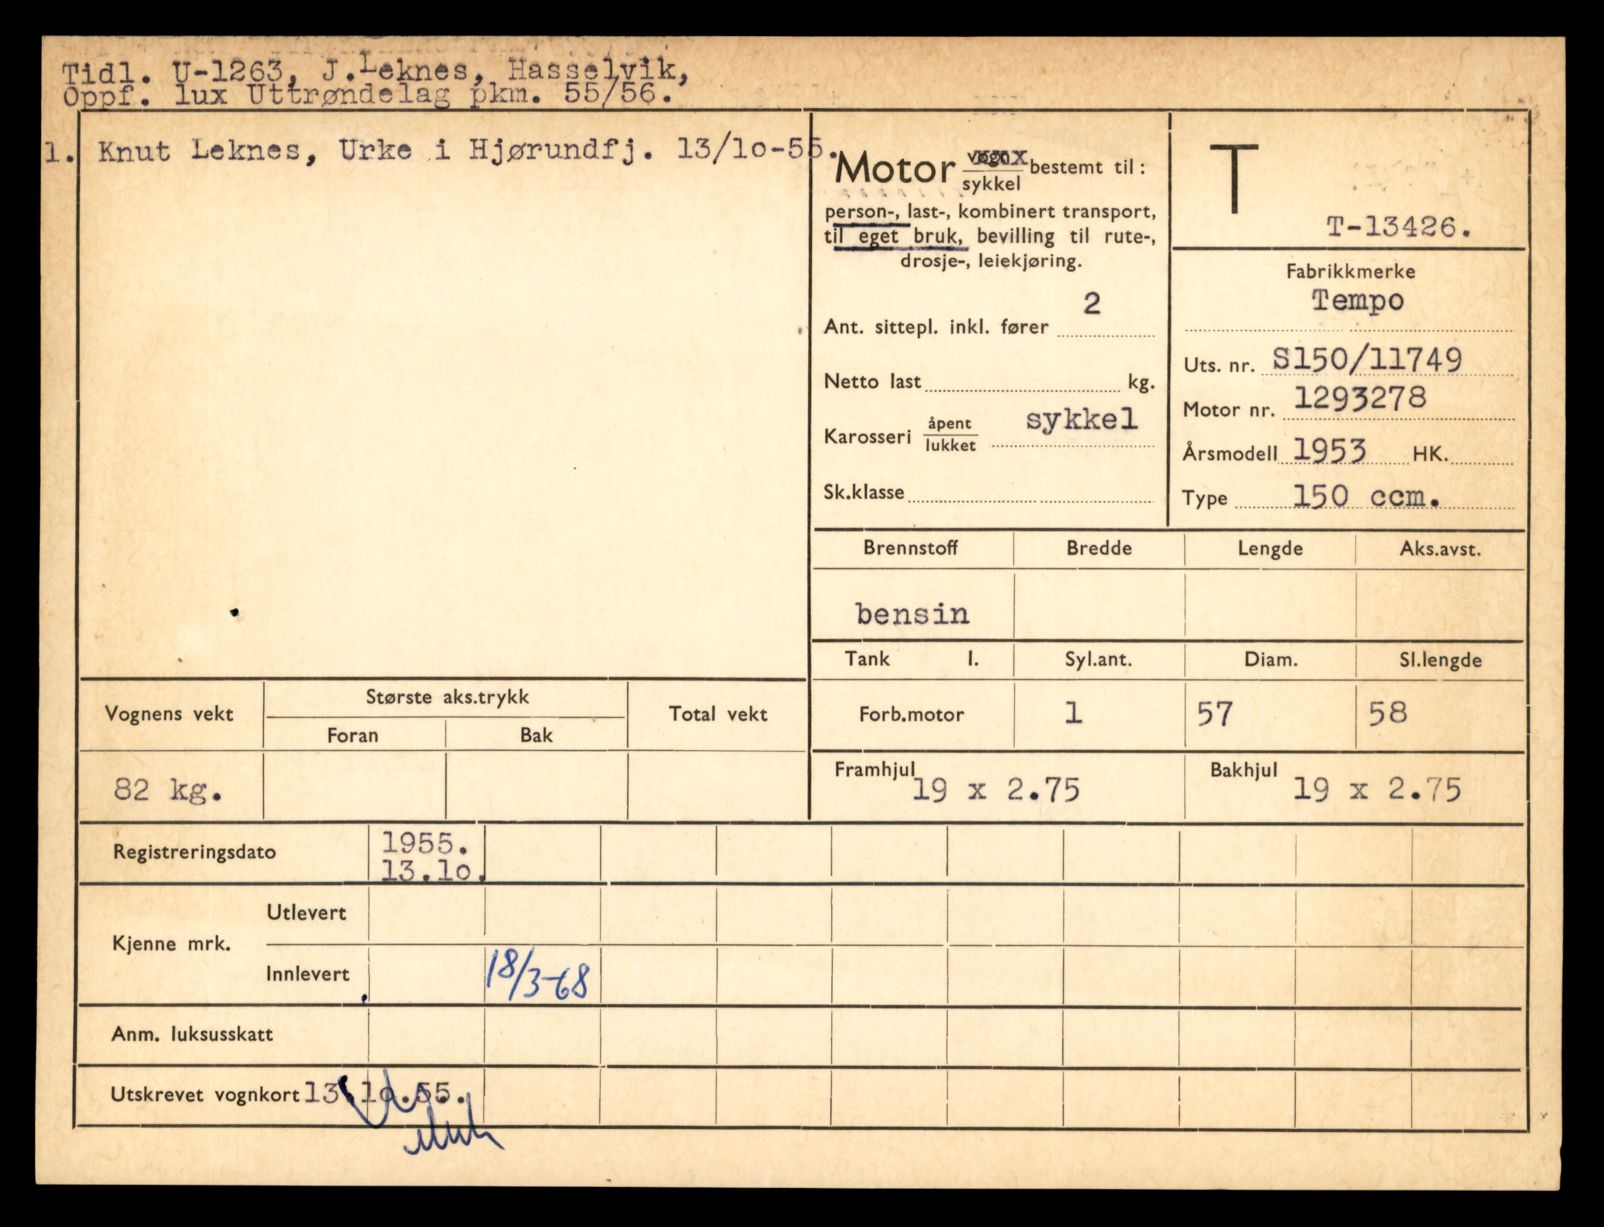 Tidl. U-1263, J.Leknes, Hasselvik,
Oppf. lux Uttrøndelag pkm. 55/56.
1. Knut Leknes, Urke i Hjørundfj. 13/1o-55.
Motor vogn/sykkel bestemt til:
person-, last-, kombinert transport,
til eget bruk, bevilling til rute-,
drosje-, leiekjøring.
Ant. sittepl. inkl. fører 2
Netto last kg.
Karosseri åpent/lukket sykkel
Sk.klasse
T
T-13426.
Fabrikkmerke
Tempo
Uts. nr. S150/11749
Motor nr. 1293278
Årsmodell 1953 HK.
Type 150 ccm.
Brennstoff Bredde Lengde Aks.avst.
bensin
Tank l. Syl.ant. Diam. Sl.lengde
Forb.motor 1 57 58
Framhjul 19 x 2.75 Bakhjul 19 x 2.75
Vognens vekt Største aks.trykk Total vekt
Foran Bak
82 kg.
Registreringsdato 1955.
13.1o.
Kjenne mrk. Utlevert
Innlevert 18/3-68
Anm. luksusskatt
Utskrevet vognkort 13.1o.55.